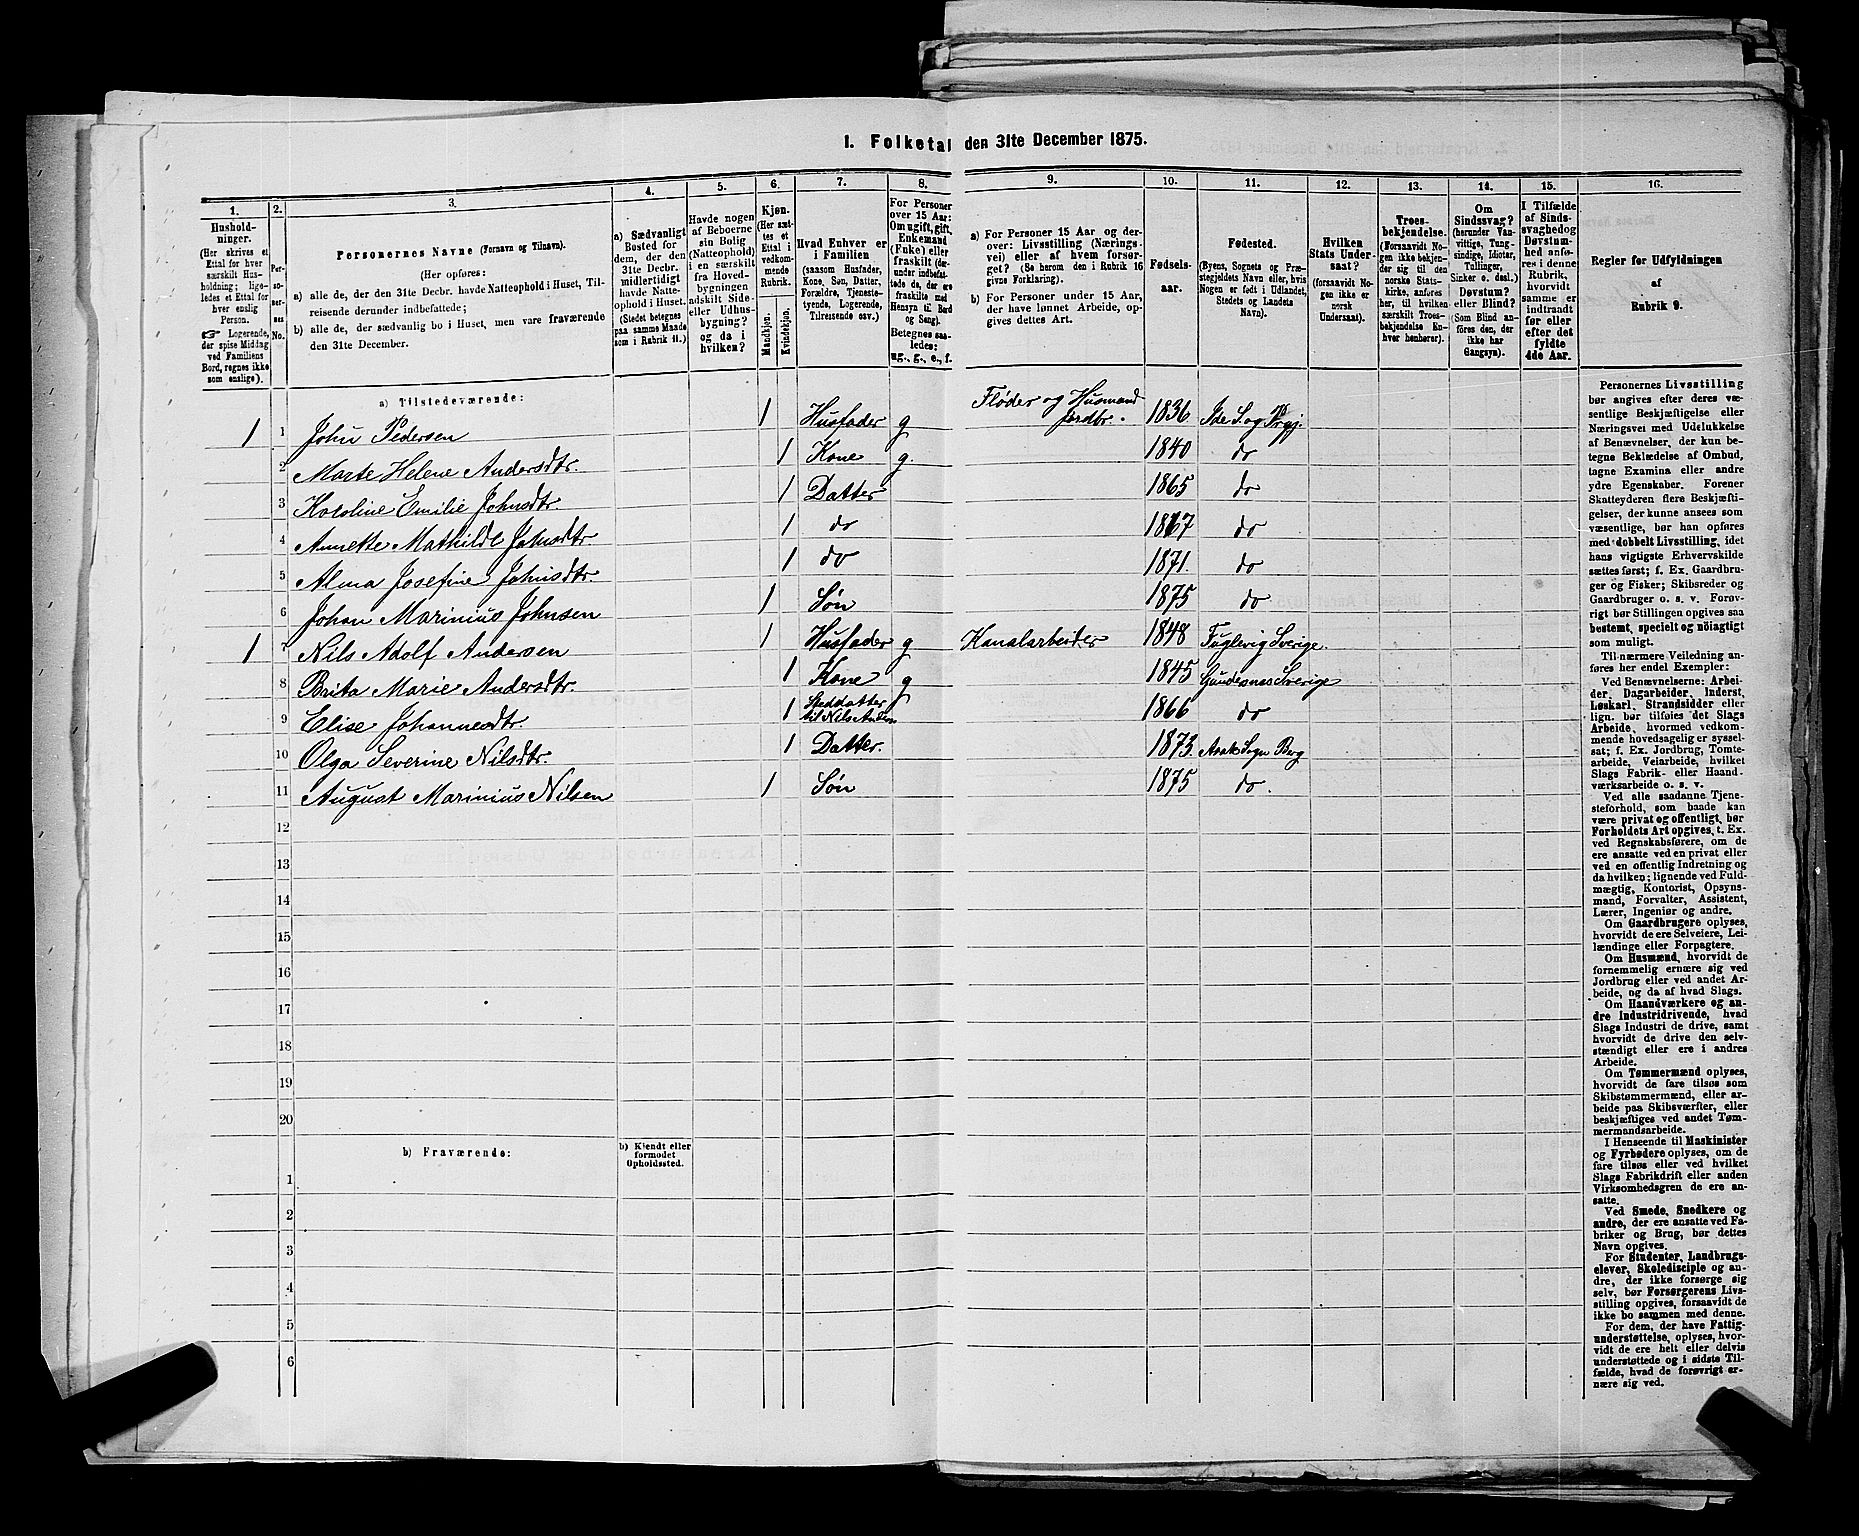 1. Folketal den 31te December 1875.
1. 2. 3. 4. 5. 6. 7. 8. 9. 10. 11. 12. 13. 14. 15. 16.
Hushold-
ninger.
(Her skrives et
Ettal for hver
særskilt Hus-
holdning; lige-
ledes et Ettal for
hver enslig
Person.
☞ Logerende,
der spise Middag
ved Familiens
Bord, regnes ikke
som enslige).
Per-
so-
ner-
nes
No.
Personernes Navne (Fornavn og Tilnavn).
(Her opføres:
a) alle de, der den 31te Decbr. havde Natteophold i Huset, Til-
reisende derunder indbefattede;
b) alle de, der sædvanlig bo i Huset, men vare fraværende
den 31te December.
a) Sædvanligt
Bosted for
dem, der den
31te Decbr.
midlertidigt
havde Natte-
ophold i Huset.
(Stedet betegnes
paa samme Maade
som i Rubrik 11.)
Havde nogen
af Beboerne
sin Bolig
(Natteophold)
i en særskilt
fra Hoved-
bygningen
adskilt Side-
eller Udhus-
bygning?
og da i
hvilken?
Kjøn.
(Her sæt-
tes et
Ettal i
vedkom-
mende
Rubrik.
Mandkjøn.
Kvindekjøn.
Hvad Enhver er
i Familien
(saasom Husfader,
Kone, Søn, Datter,
Forældre, Tjeneste-
tyende, Logerende,
Tilreisende osv.)
For Personer
over 15 Aar:
Om ugift, gift,
Enkemand
(Enke) eller
fraskilt (der-
under indbefat-
tede de, der ere
fraskilte med
Hensyn til Bord
og Seng).
Betegnes saa-
ledes:
ug., g., e., f.
a) For Personer 15 Aar og der-
over: Livsstilling (Nærings-
vei) eller af hvem forsør-
get? (Se herom den i Rubrik 16
givne Forklaring).
b) For Personer under 15 Aar,
der have lønnet Arbeide, op-
gives dettes Art.
Fødsels-
aar.
Fødested.
(Byens, Sognets og Præ-
stegjeldets Navn eller, hvis
Nogen er født i Udlandet,
Stedets og Landets
Navn).
Hvilken
Stats Under-
saat?
(forsaavidt No-
gen ikke er
norsk
Undersaat).
Troes-
bekjendelse.
(Forsaavidt No-
gen ikke bekjen-
der sig til den
norske Stats-
kirke, anføres
her, til hvilken
særskilt Troes-
bekjendelse En-
hver henhører).
Om
Sindssvag?
(herunder Van-
vittige, Tung-
sindige, Idioter,
Tullinger,
Sinker o. desl.)
Døvstum?
eller Blind?
(Som Blind an-
føres den, der
ikke har
Gangsyn).
I Tilfælde
af Sinds-
svaghed og
Døvstum-
hed anfø-
res i denne
Rubrik,
hvorvidt
samme er
indtraadt
før eller
efter det
fyldte
4de Aar.
Regler for Udfyldningen
af
Rubrik 9.
a) Tilstedeværende:
1 1 John Pedersen 1 Husfader g Fløder og Husmand
Jordbr. 1836 Ide S. og Prgj.
2 Marte Helene Andersdtr. 1 Kone g. 1840 do
3 Karoline Emilie Johnsdtr. 1 Datter 1865 do
4 Annette Mathilde Johnsdtr. 1 do 1867 do
5 Alma Josefine Johnsdtr. 1 do 1871. do
6 Johan Marinius Johnsen 1 Søn 1875 do
1 7 Nils Adolf Andersen 1 Husfader g Kanalarbeider 1848 Fuglevig Sverige.
8 Brita Marie Andersdtr. 1 Kone g 1845 Sverige
9 Elise Johannesdtr. 1 Steddatter
til Nils Ander 1866 do
10 Olga Severine Nilsdtr. 1 Datter. 1873. Asak Sogn Berg
11 August Marinius Nilsen 1 Søn 1875 do.
12
13
14
15
16
17
18
19
20
b) Fraværende:
b) Kjendt eller
formodet
Opholdssted.
1
2
3
4
5
6
Personernes Livsstilling
bør angives efter deres væ-
sentlige Beskjæftigelse eller
Næringsvei med Udelukkelse
af Benævnelser, der kun be-
tegne Beklædelse af Ombud,
tagne Examina eller andre
ydre Egenskaber. Forener
Skatteyderen flere Beskjæfti-
gelser, der kunne ansees som
væsentlige, bør han opføres
med dobbelt Livsstilling, idet
hans vigtigste Erhvervskilde
sættes først; f. Ex. Gaardbru-
ger og Fisker; Skibsreder og
Gaardbruger o. s. v. Forøv-
rigt bør Stillingen opgives saa
bestemt, specielt og nöiagtigt
som muligt.
Til nærmere Veiledning an-
føres her endel Exempler:
Ved Benævnelserne: Arbei-
der, Dagarbeider, Inderst,
Løskarl, Strandsidder eller
lign. bør tilføies det Slags
Arbeide, hvormed vedkom-
mende hovedsagelig er syssel-
sat; f. Ex. Jordbrug, Tomte-
arbeide, Veiarbeide, hvilket
Slags Fabrik- eller Haand-
værksarbeide o. s. v.
Ved alle saadanne Tjene-
steforhold, som baade kan
være privat og offentligt, bør
Forholdets Art opgives, t. Ex.
ved Regnskabsførere, om de
ere ansatte ved en privat eller
ved en offentlig Indretning og
da hvilken; lignende ved Fuld-
mægtig, Kontorist, Opsyns-
mand, Forvalter, Assistent,
Lærer, Ingeniør og andre.
Om Gaardbrugere oplyses,
hvorvidt de ere Selveiere, Lei-
lændinge eller Forpagtere.
Om Husmænd, hvorvidt de
fornemmelig ernære sig ved
Jordbrug eller ved andet Ar-
beide, og da af hvad Slags.
Om Haandværkere og an-
dre Industridrivende, hvad
Slags Industri de drive, samt
hvorvidt de drive den selv-
stændigt eller ere i andres
Arbeide.
Om Tømmermænd oplyses,
hvorvidt de fare tilsøs som
Skibstømmermænd, eller ar-
beide paa Skibsværfter, eller
beskjæftiges ved andet Tøm-
mermandsarbeide.
I Henseende til Maskinister
og Fyrbødere oplyses, om de
fare tilsøs eller ved hvilket
Slags Fabrikdrift eller anden
Virksomhedsgren de ere an-
satte.
Ved Smede, Snedkere og
andre, der ere ansatte ved Fa-
briker og Brug, bør dettes
Navn opgives.
For Studenter, Landbrugs-
elever, Skoledisciple og an-
dre, der ikke forsørge sig
selv, bør Forsørgerens Livs-
stilling opgives, forsaavidt de
ikke bo sammen med denne.
For dem, der have Fattig-
understøttelse, oplyses, hvor-
vidt de ere helt eller delvis
understøttede og i sidste Til-
fælde, hvad de forøvrigt er-
nære sig ved.